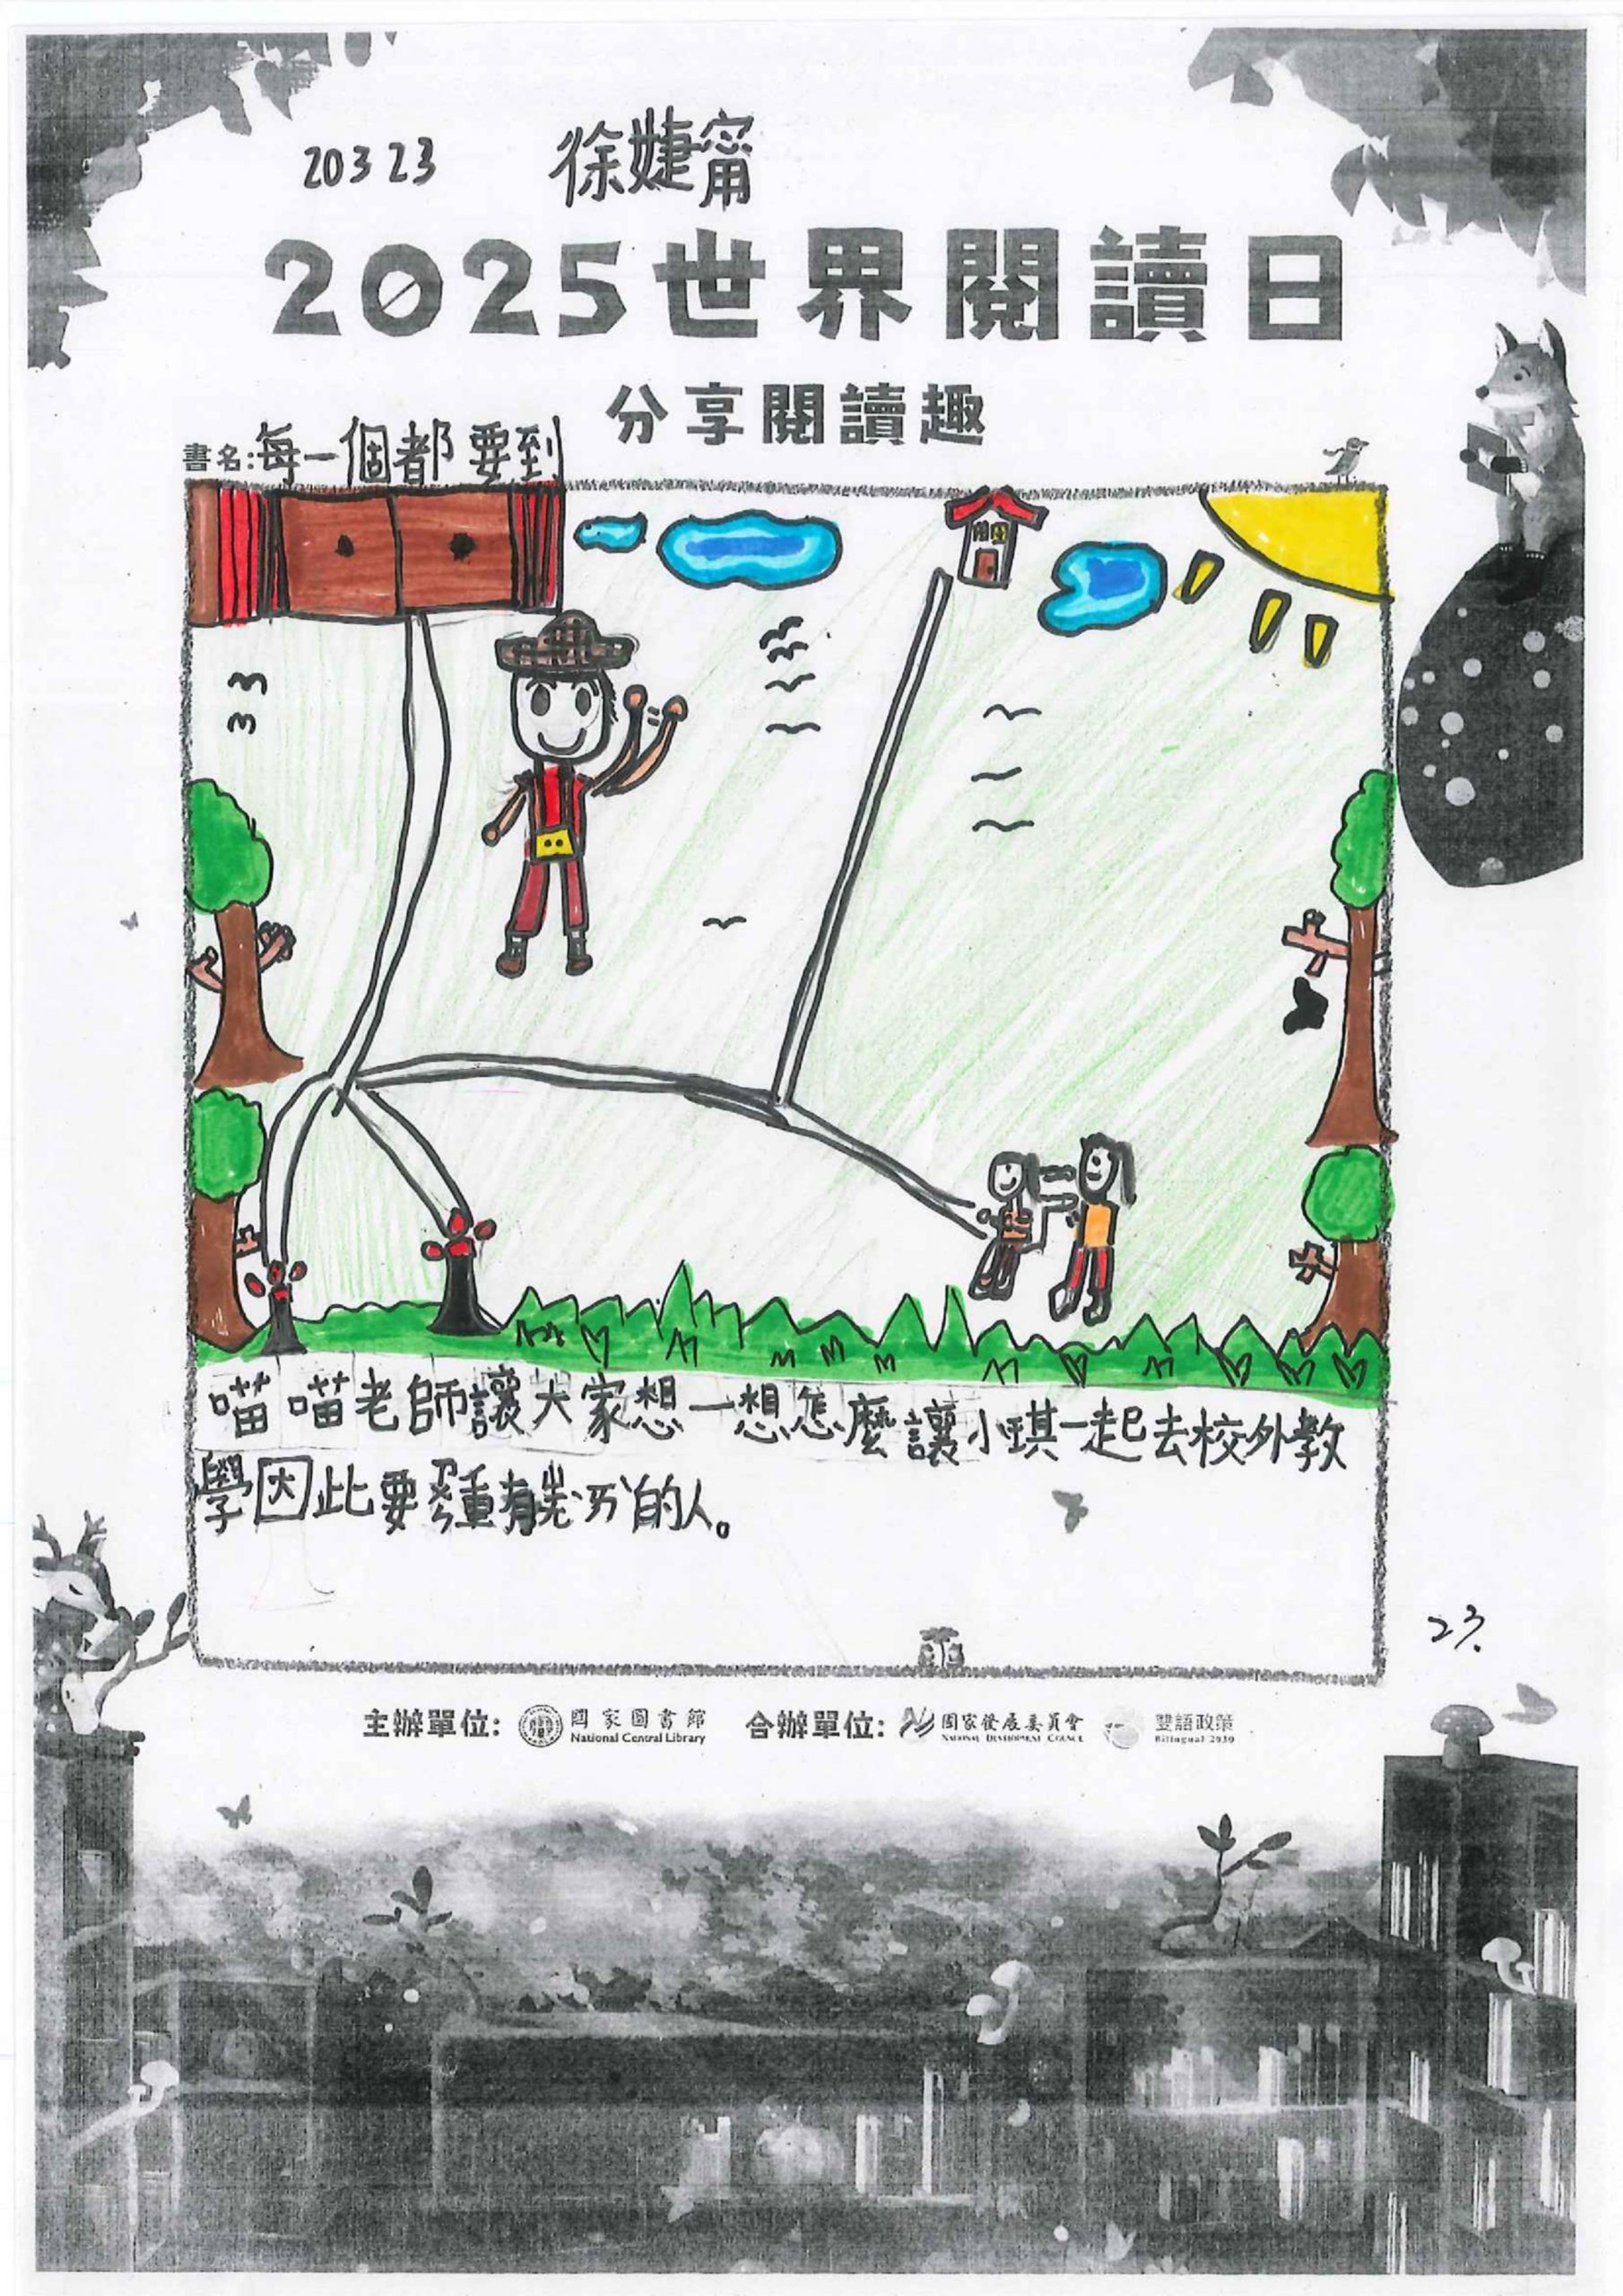 20323 徐婕甯
2025世界閱讀日
分享閱讀趣
書名:每一個都要到
喵喵老師讓大家想一想怎麼讓小琪一起去校外教
學因此要重有ㄞˋ的人。
23.
主辦單位: 國家圖書館 National Central Library 合辦單位: 國家發展委員會 NATIONAL DEVELOPMENT COUNCIL 雙語政策 Bilingual 2030